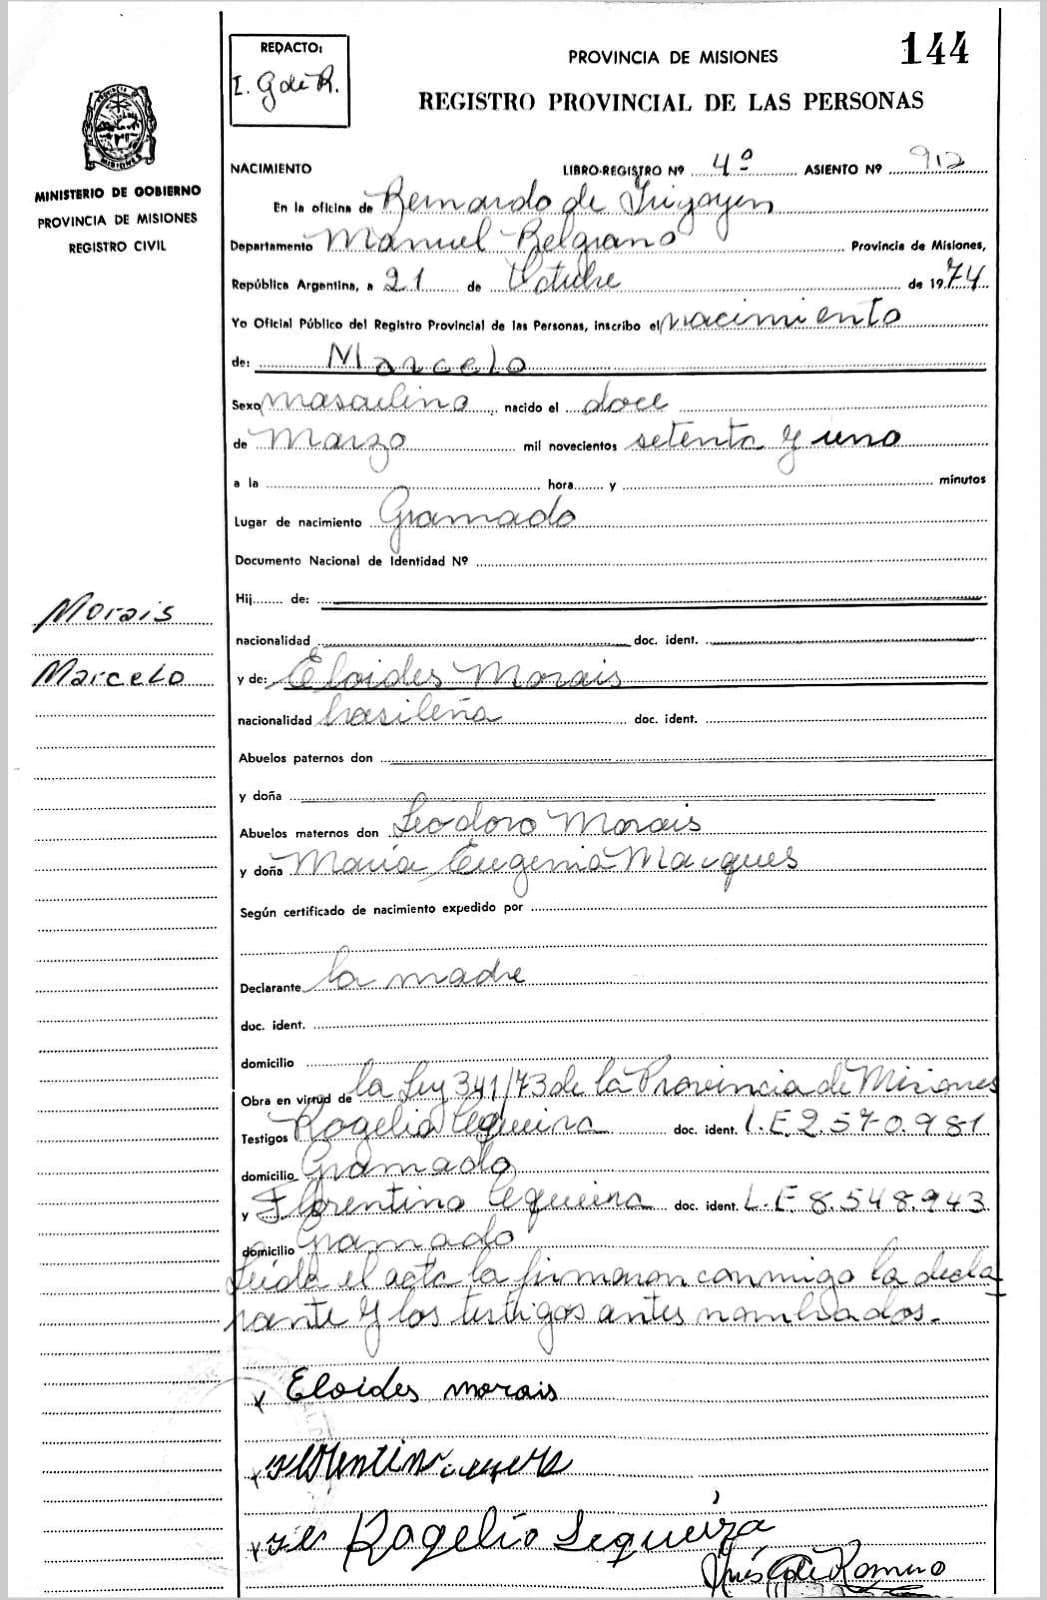 REDACTO:
I. G de R.
PROVINCIA DE MISIONES
144
REGISTRO PROVINCIAL DE LAS PERSONAS
PROVINCIA DE
MISIONES
MINISTERIO DE GOBIERNO
PROVINCIA DE MISIONES
REGISTRO CIVIL
NACIMIENTO LIBRO-REGISTRO Nº 4º ASIENTO Nº 912
En la oficina de Bernardo de Irigoyen
Departamento Manuel Belgrano Provincia de Misiones,
República Argentina, a 21 de Octubre de 1974
Yo Oficial Público del Registro Provincial de las Personas, inscribo el nacimiento
de: Marcelo
Sexo masculino, nacido el doce
de Marzo mil novecientos setenta y uno
a la hora y minutos
Lugar de nacimiento Gramado
Documento Nacional de Identidad Nº
Hij de:
nacionalidad doc. ident.
Morais
Marcelo
y de: Eloides Morais
nacionalidad brasileña doc. ident.
Abuelos paternos don
y doña
Abuelos maternos don Leodoro Morais
y doña María Eugenia Marques
Según certificado de nacimiento expedido por
Declarante la madre
doc. ident.
domicilio
Obra en virtud de la Ley 341/73 de la Provincia de Misiones
Testigos Rogelio Cequeira doc. ident. L.E. 2.570.981
domicilio Gramado
y Florentino Cequeira doc. ident. L.E. 8.548.943
domicilio Gramado
Leída el acta la firmaron conmigo la decla
rante y los testigos antes nombrados.
x Eloides morais
x Rogelio Sequeira
Inés G de Romero